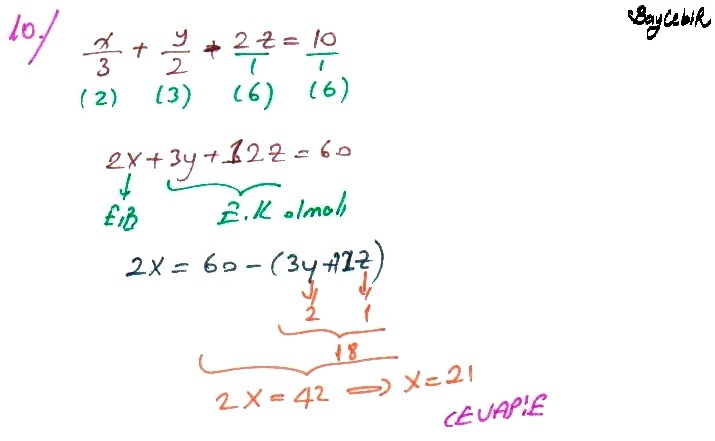 BayCebiR
10./
x/3 + y/2 + 2z/1 = 10/1
(2) (3) (6) (6)
2x+3y+12z=60
E.B E.K olmalı
2x = 60-(3y+12z)
2 1
18
2x=42 ⇒ x=21
CEVAP:E